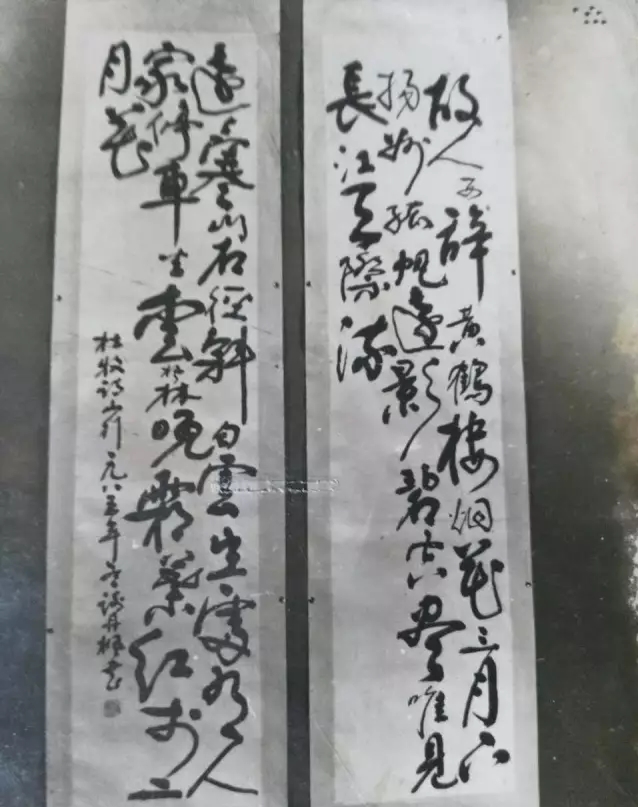 故人西辭黃鶴樓烟花三月下
揚州孤帆遠影碧空盡唯見
長江天際流
遠上寒山石徑斜白雲生處有人
家停車坐愛楓林晚霜葉紅於二
月花
杜牧诗山行一九八五年冬丹楓书